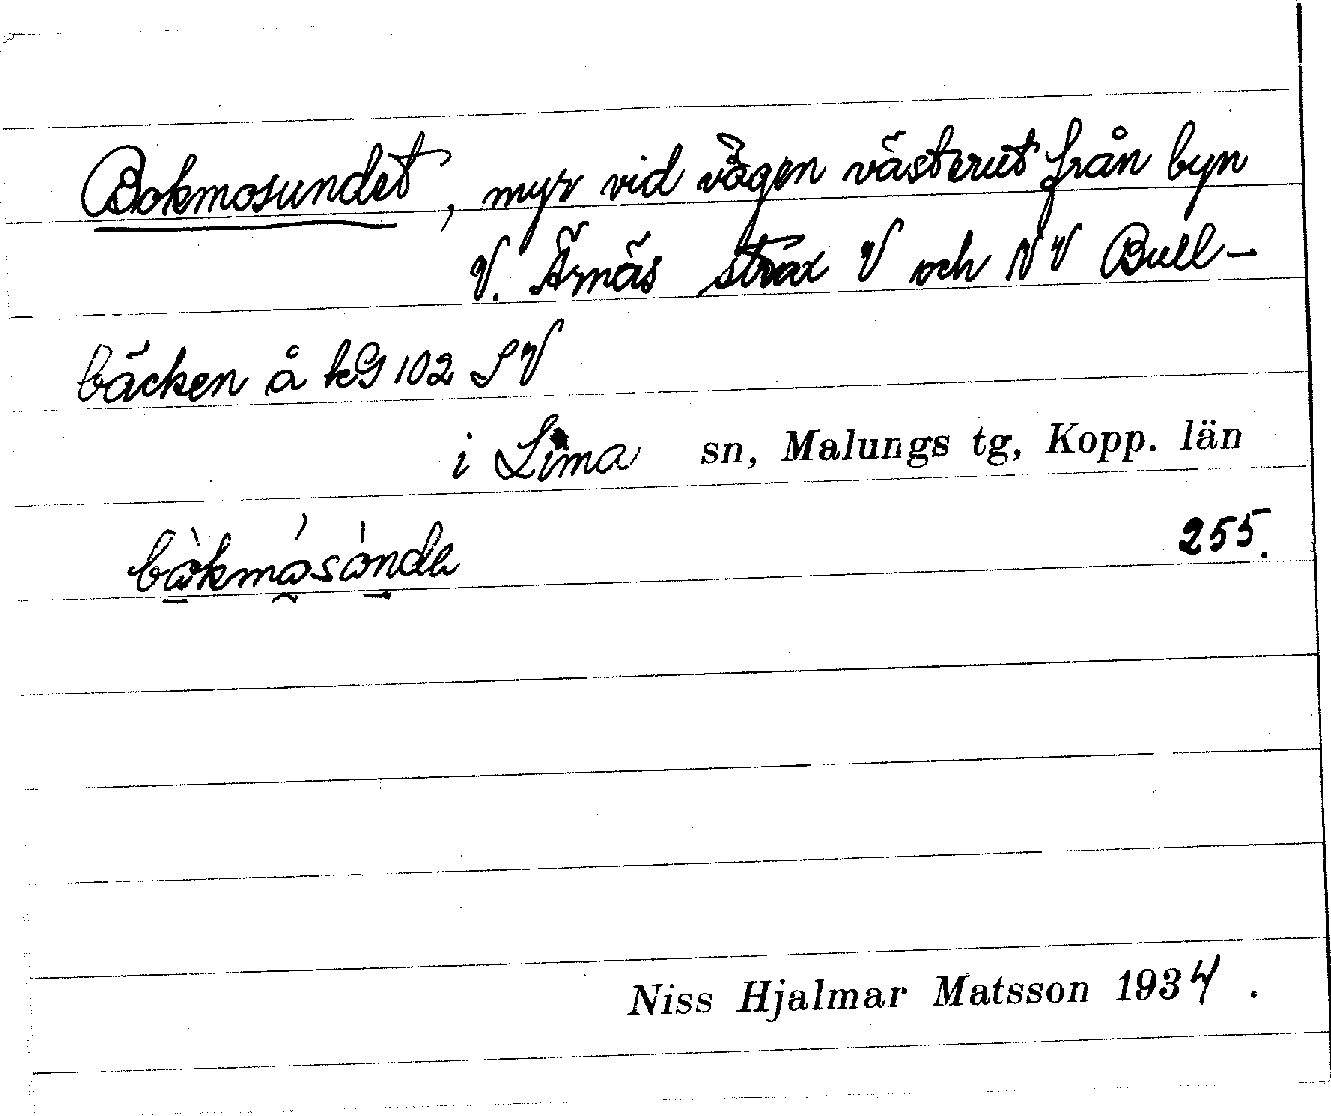 Bokmosundet, myr vid vägen västerut från byn
V. Ärnäs strax V och NV Bull-
bäcken å kG 102 SV
i Lima sn, Malungs tg, Kopp. län
bòkmósónda
255.
Niss Hjalmar Matsson 1934.